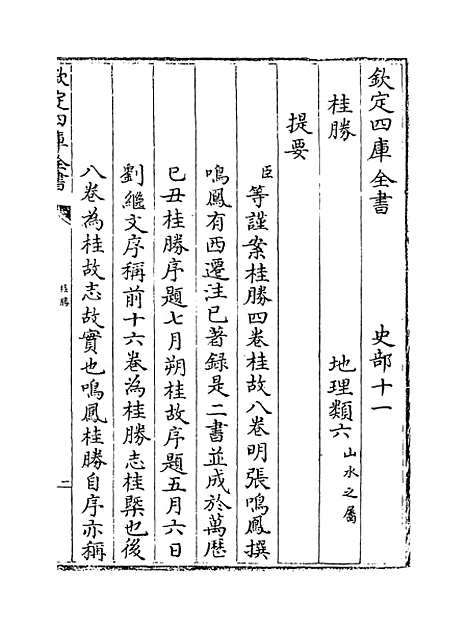 欽定四庫全書　史部十一
桂勝　地理類六山水之屬
提要
臣等謹案桂勝四卷桂故八卷明張鳴鳳撰
鳴鳳有西遷注已著録是二書並成於萬厯
已丑桂勝序題七月朔桂故序題五月六日
劉繼文序稱前十六卷為桂勝志桂槩也後
八卷為桂故志故實也鳴鳳桂勝自序亦稱
欽定四庫全書
桂勝
二